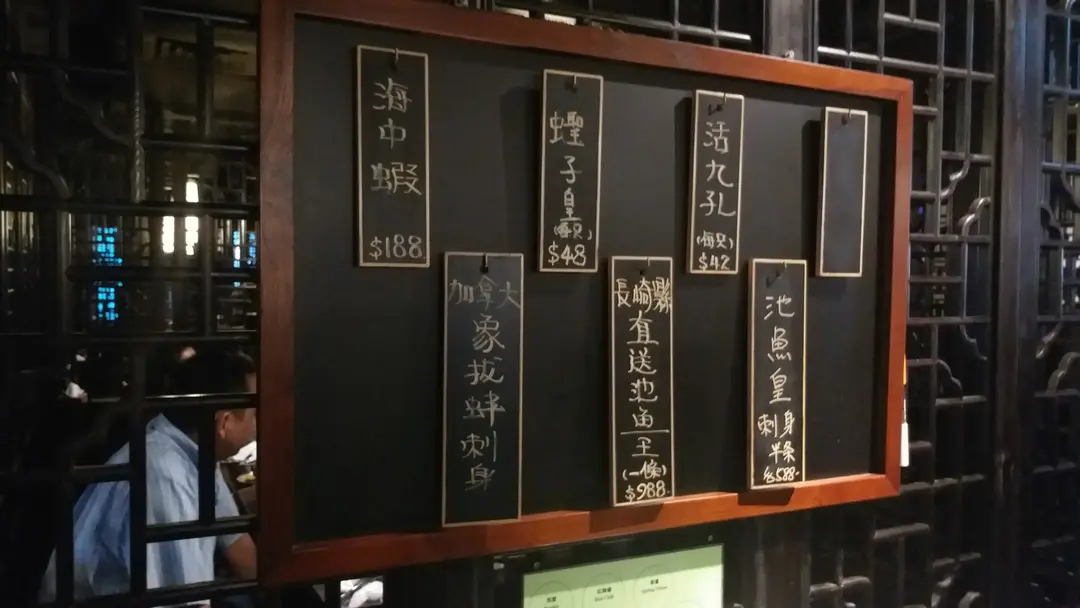 海中蝦
$188
蟶子皇
(每只)
$48
活九孔
(每只)
$42
加拿大
象拔蚌刺身
長崎縣
直送池魚王
(一條)
$988
池魚皇
刺身
半条
$588